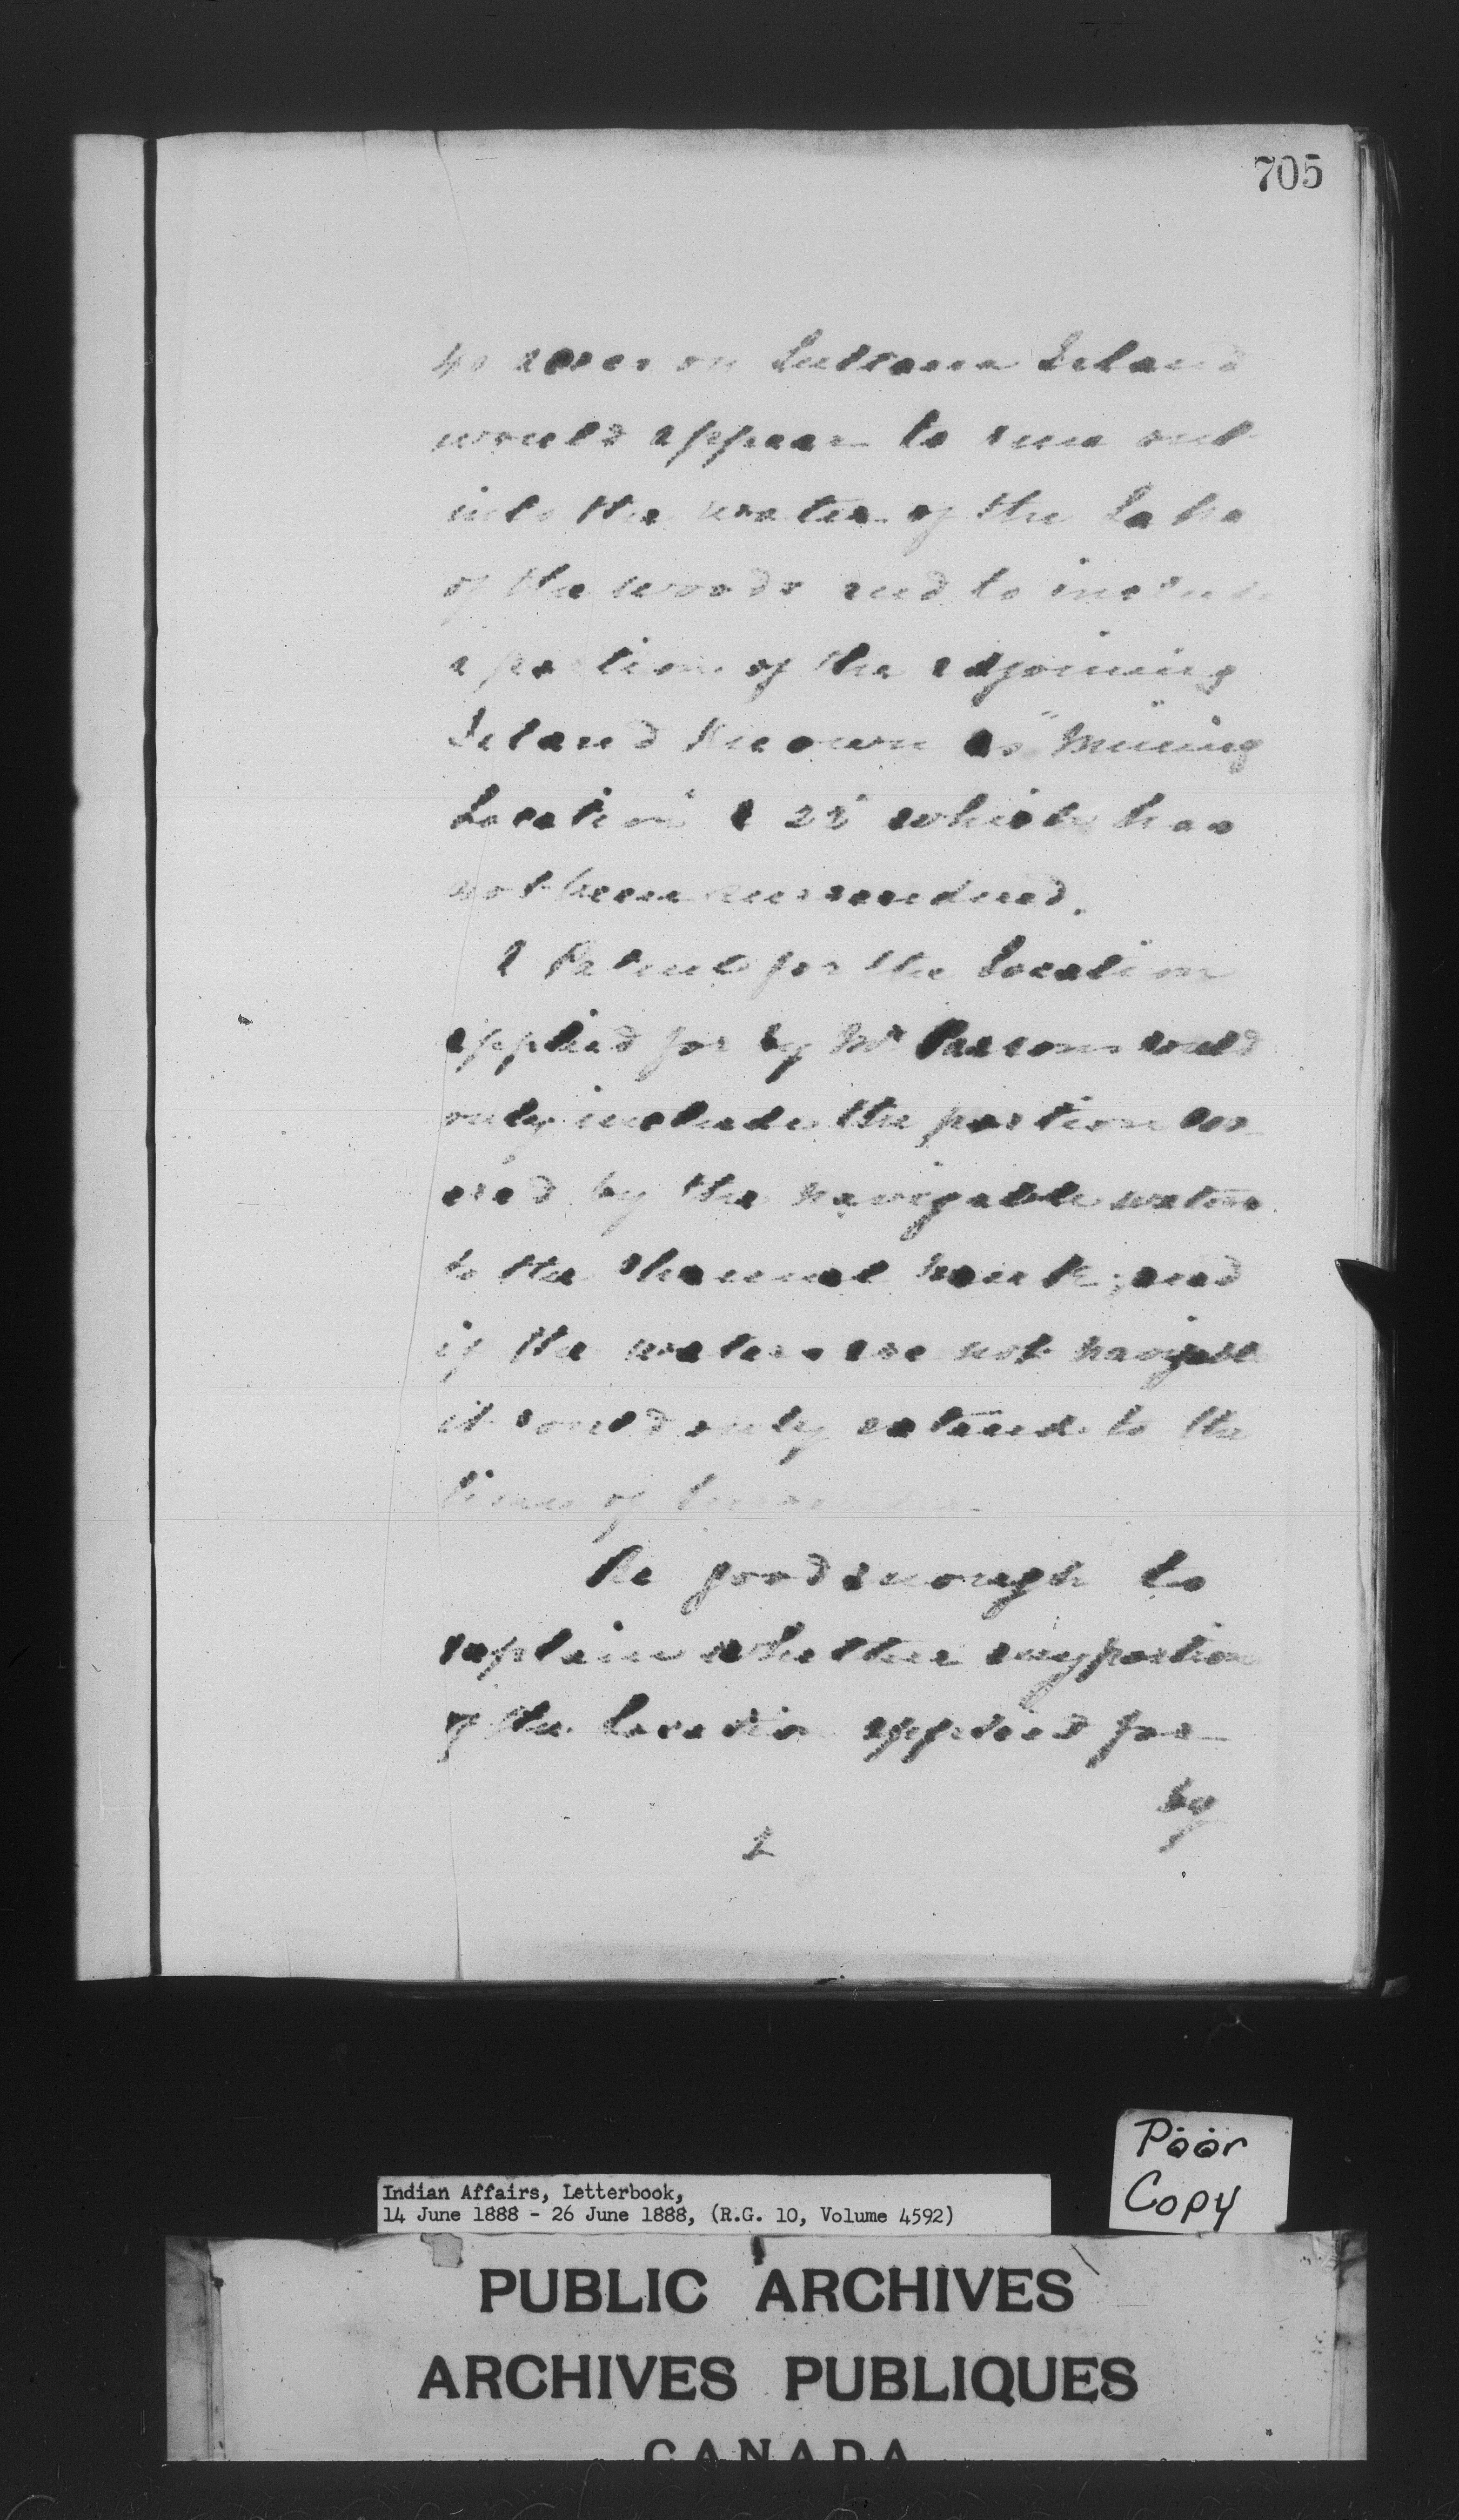 705
40 acres on Sultana Island
would appear to run out
into the water of the Lake
of the Woods and to include
a portion of the adjoining
Island Known as "Mining
Location" 22 which has
not been surrendered.
A Patent for the Location
applied for by Mr Parsons could
only include the portion cov-
ered by the navigable waters
to the Channel bank, and
if the waters are not navigable
it could only extend to the
lines of surrender.
Be good enough to
explain whether any portion
of the Location applied for
by
Poor
Copy
Indian Affairs, Letterbook,
14 June 1888 - 26 June 1888, (R.G. 10, Volume 4592)
PUBLIC ARCHIVES
ARCHIVES PUBLIQUES
CANADA